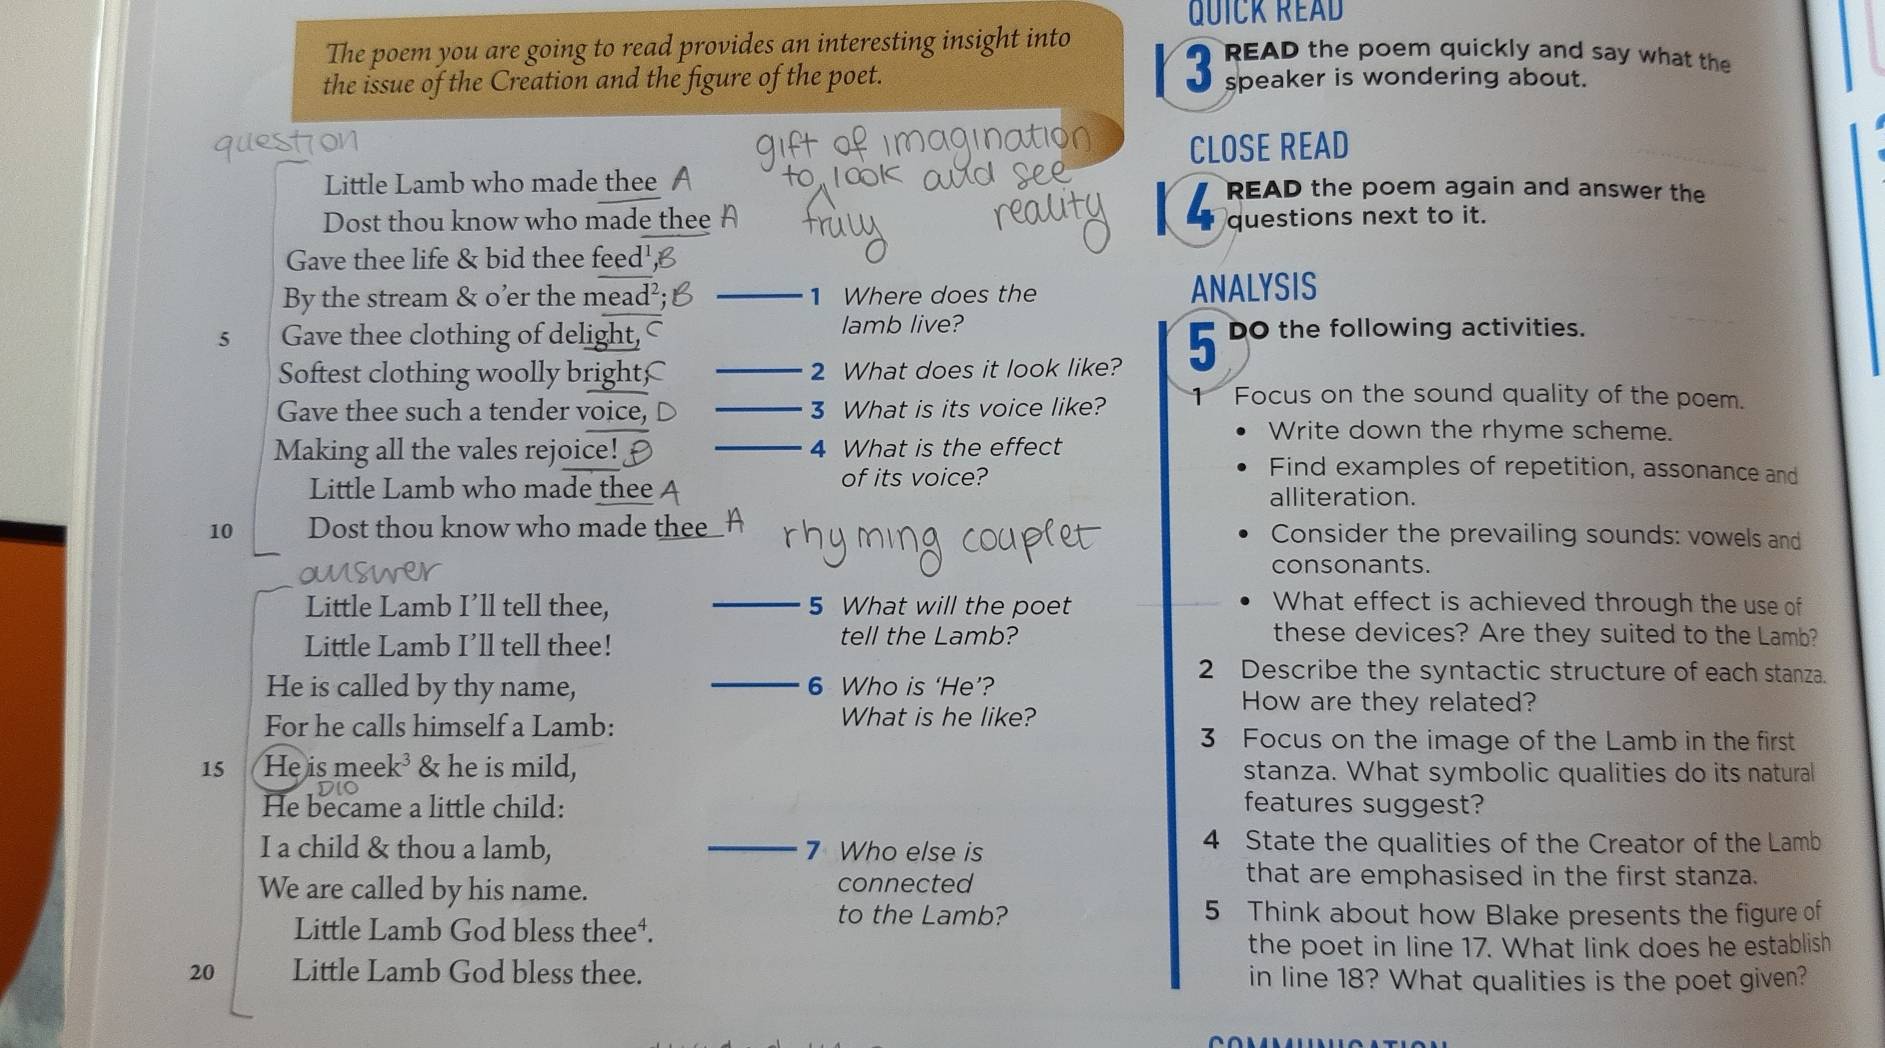 The poem you are going to read provides an interesting insight into
the issue of the Creation and the figure of the poet.
question
gift of imagination
to look and see
truly
reality
Little Lamb who made thee A
Dost thou know who made thee A
Gave thee life & bid thee feed¹, B
By the stream & o'er the mead²; B
5 Gave thee clothing of delight, C
Softest clothing woolly bright; C
Gave thee such a tender voice, D
Making all the vales rejoice! D
Little Lamb who made thee A
10 Dost thou know who made thee A
rhyming couplet
answer
Little Lamb I'll tell thee,
Little Lamb I'll tell thee!
He is called by thy name,
For he calls himself a Lamb:
15 He is meek³ & he is mild,
DIO
He became a little child:
I a child & thou a lamb,
We are called by his name.
Little Lamb God bless thee⁴.
20 Little Lamb God bless thee.
1 Where does the
lamb live?
2 What does it look like?
3 What is its voice like?
4 What is the effect
of its voice?
5 What will the poet
tell the Lamb?
6 Who is ‘He’?
What is he like?
7 Who else is
connected
to the Lamb?
QUICK READ
3 READ the poem quickly and say what the
speaker is wondering about.
CLOSE READ
4 READ the poem again and answer the
questions next to it.
ANALYSIS
5 DO the following activities.
1 Focus on the sound quality of the poem.
• Write down the rhyme scheme.
• Find examples of repetition, assonance and
alliteration.
• Consider the prevailing sounds: vowels and
consonants.
• What effect is achieved through the use of
these devices? Are they suited to the Lamb?
2 Describe the syntactic structure of each stanza.
How are they related?
3 Focus on the image of the Lamb in the first
stanza. What symbolic qualities do its natural
features suggest?
4 State the qualities of the Creator of the Lamb
that are emphasised in the first stanza.
5 Think about how Blake presents the figure of
the poet in line 17. What link does he establish
in line 18? What qualities is the poet given?